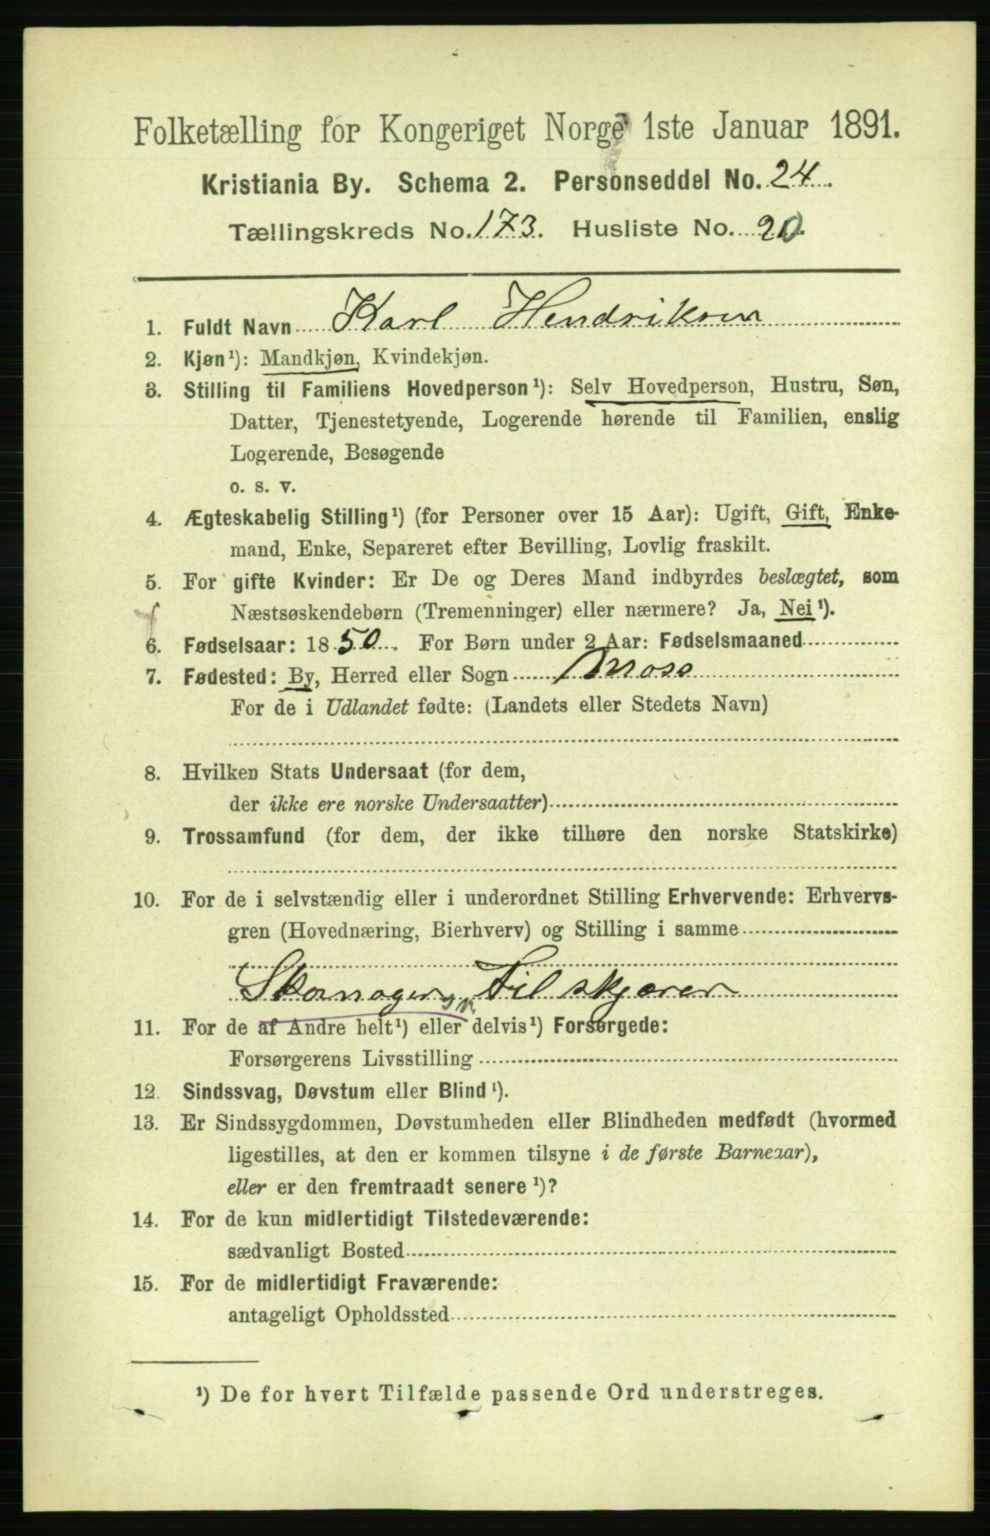 Folketælling for Kongeriget Norge 1ste Januar 1891.
Kristiania By. Schema 2. Personseddel No. 24.
Tællingskreds No. 173. Husliste No. 20.
1. Fuldt Navn Karl Hendriksen
2. Kjøn¹): Mandkjøn, Kvindekjøn.
3. Stilling til Familiens Hovedperson¹): Selv Hovedperson, Hustru, Søn,
Datter, Tjenestetyende, Logerende hørende til Familien, enslig
Logerende, Besøgende
o. s. v.
4. Ægteskabelig Stilling¹) (for Personer over 15 Aar): Ugift, Gift, Enke-
mand, Enke, Separeret efter Bevilling, Lovlig fraskilt.
5. For gifte Kvinder: Er De og Deres Mand indbyrdes beslægtet, som
Næstsøskendebørn (Tremenninger) eller nærmere? Ja, Nei¹).
6. Fødselsaar: 1850. For Børn under 2 Aar: Fødselsmaaned
7. Fødested: By, Herred eller Sogn Moss
For de i Udlandet fødte: (Landets eller Stedets Navn)
8. Hvilken Stats Undersaat (for dem,
der ikke ere norske Undersaatter)
9. Trossamfund (for dem, der ikke tilhøre den norske Statskirke)
10. For de i selvstændig eller i underordnet Stilling Erhvervende: Erhvervs-
gren (Hovednæring, Bierhverv) og Stilling i samme
Skomager Tilskjærer
11. For de af Andre helt¹) eller delvis¹) Forsørgede:
Forsørgerens Livsstilling
12. Sindssvag, Døvstum eller Blind¹).
13. Er Sindssygdommen, Døvstumheden eller Blindheden medfødt (hvormed
ligestilles, at den er kommen tilsyne i de første Barneaar),
eller er den fremtraadt senere¹)?
14. For de kun midlertidigt Tilstedeværende:
sædvanligt Bosted
15. For de midlertidigt Fraværende:
antageligt Opholdssted
¹) De for hvert Tilfælde passende Ord understreges.